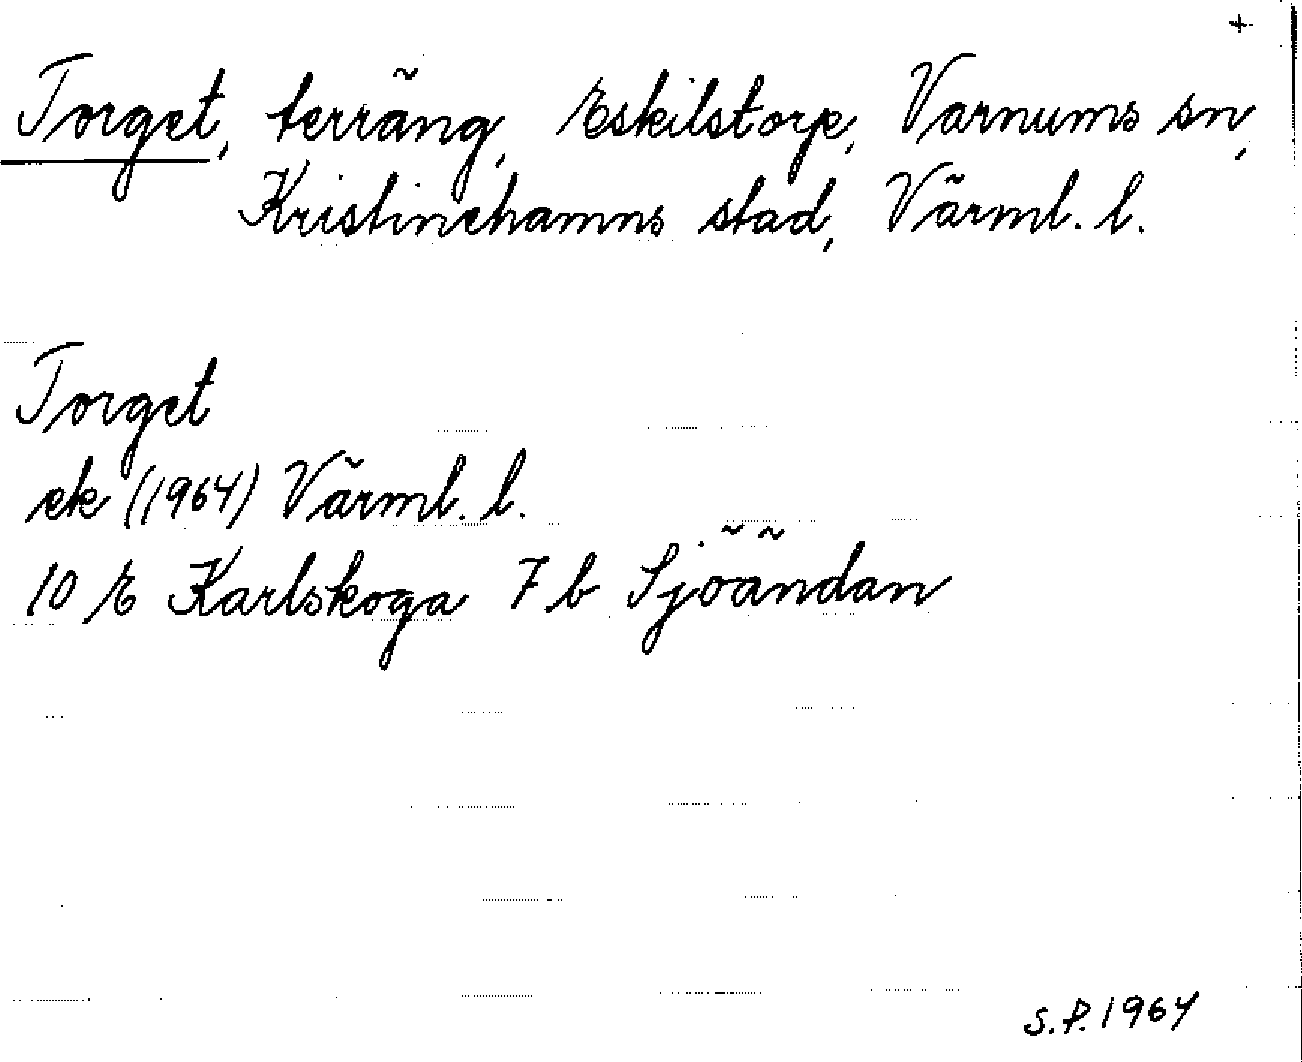 +
Torget, terräng, Eskilstorp, Varnums sn,
Kristinehamns stad, Värml. l.
Torget
ek (1964) Värml. l.
10 E Karlskoga 7 b Sjöändan
S.P. 1964